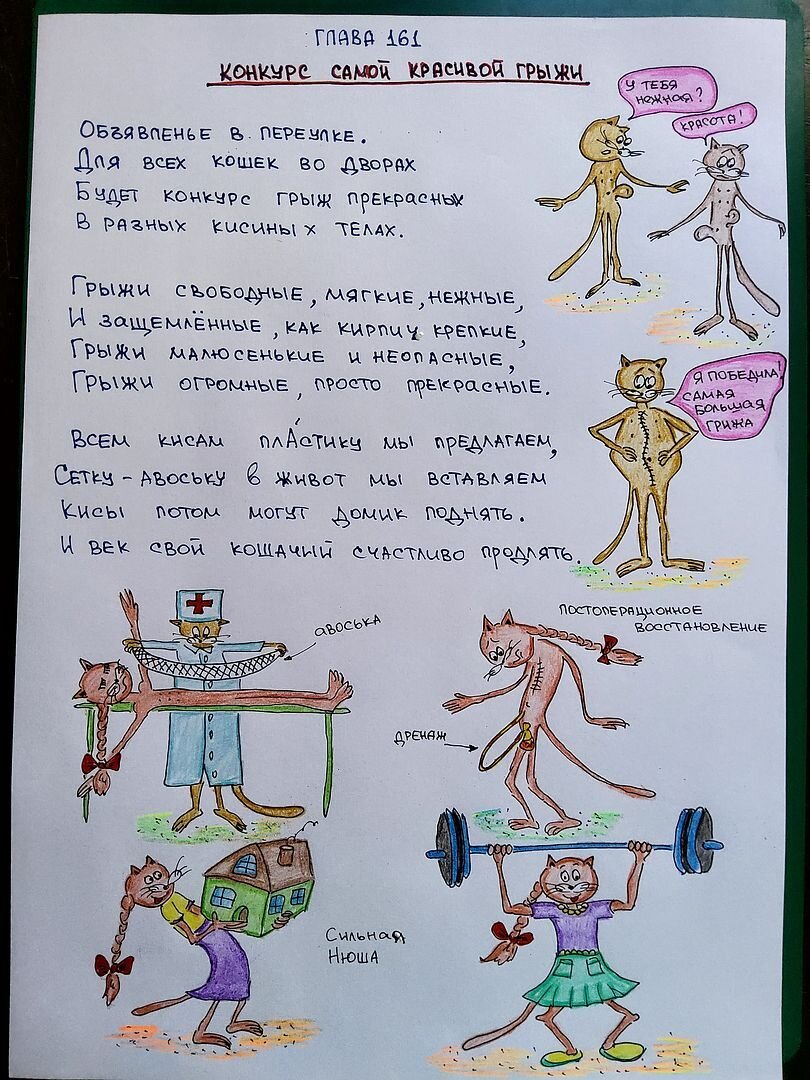 ГЛАВА 161
КОНКУРС САМОЙ КРАСИВОЙ ГРЫЖИ
У ТЕБЯ
НЕЖНАЯ?
КРАСОТА!
ОБЪЯВЛЕНЬЕ В ПЕРЕУЛКЕ.
ДЛЯ ВСЕХ КОШЕК ВО ДВОРАХ
БУДЕТ КОНКУРС ГРЫЖ ПРЕКРАСНЫХ
В РАЗНЫХ КИСИНЫХ ТЕЛАХ.
ГРЫЖИ СВОБОДНЫЕ, МЯГКИЕ, НЕЖНЫЕ,
И ЗАЩЕМЛЁННЫЕ, КАК КИРПИЧ КРЕПКИЕ,
ГРЫЖИ МАЛЮСЕНЬКИЕ И НЕОПАСНЫЕ,
ГРЫЖИ ОГРОМНЫЕ, ПРОСТО ПРЕКРАСНЫЕ.
Я ПОБЕДИЛА!
САМАЯ
БОЛЬШАЯ
ГРИЖА
ВСЕМ КИСАМ ПЛА́СТИКУ МЫ ПРЕДЛАГАЕМ,
СЕТКУ-АВОСЬКУ В ЖИВОТ МЫ ВСТАВЛЯЕМ
КИСЫ ПОТОМ МОГУТ ДОМИК ПОДНЯТЬ.
И ВЕК СВОЙ КОШАЧИЙ СЧАСТЛИВО ПРОДЛЯТЬ.
АВОСЬКА
ПОСТОПЕРАЦИОННОЕ
ВОССТАНОВЛЕНИЕ
ДРЕНАЖ
СИЛЬНАЯ
НЮША